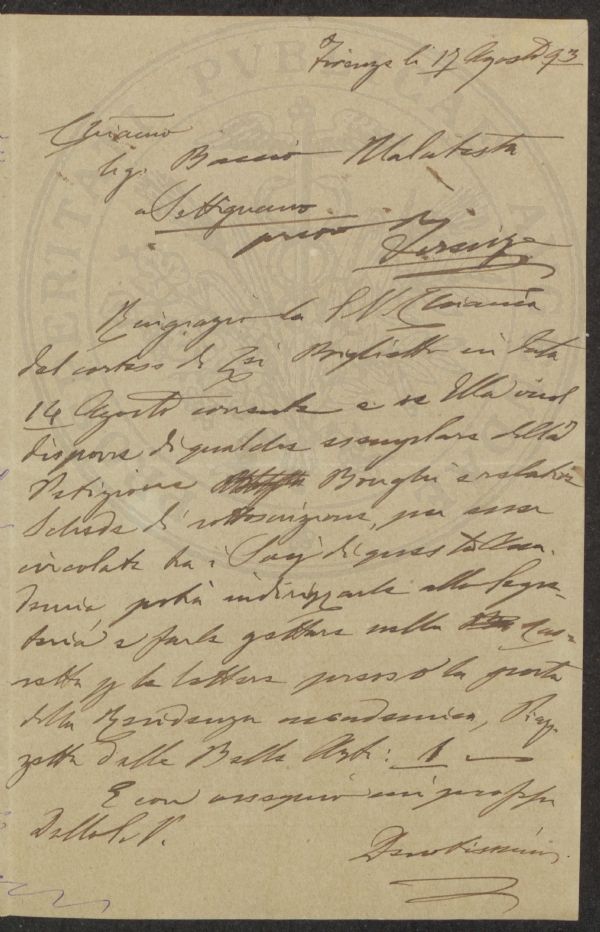 Firenze li 17 Agosto 93
Chiarmo
Sig. Baccio Malatesta
a Settignano
presso Firenze
Ringrazio la S. V. Chiarma
del cortese di Lei Biglietto in data
14 Agosto corrente e se Ella vuol
disporre di qualche esemplare della
Petizione Bonghi e relative
Schede di sottoscrizione, per esser
circolate tra i Socj di questa Acca-
demia, potrà indirizzarle alla Segre-
teria e farle gettare nella Cas-
setta p le lettere presso la porta
della Residenza accademica, Piaz-
zetta delle Belle Arti: 1
E con ossequio mi proffo
Della S. V.
Devotissimo